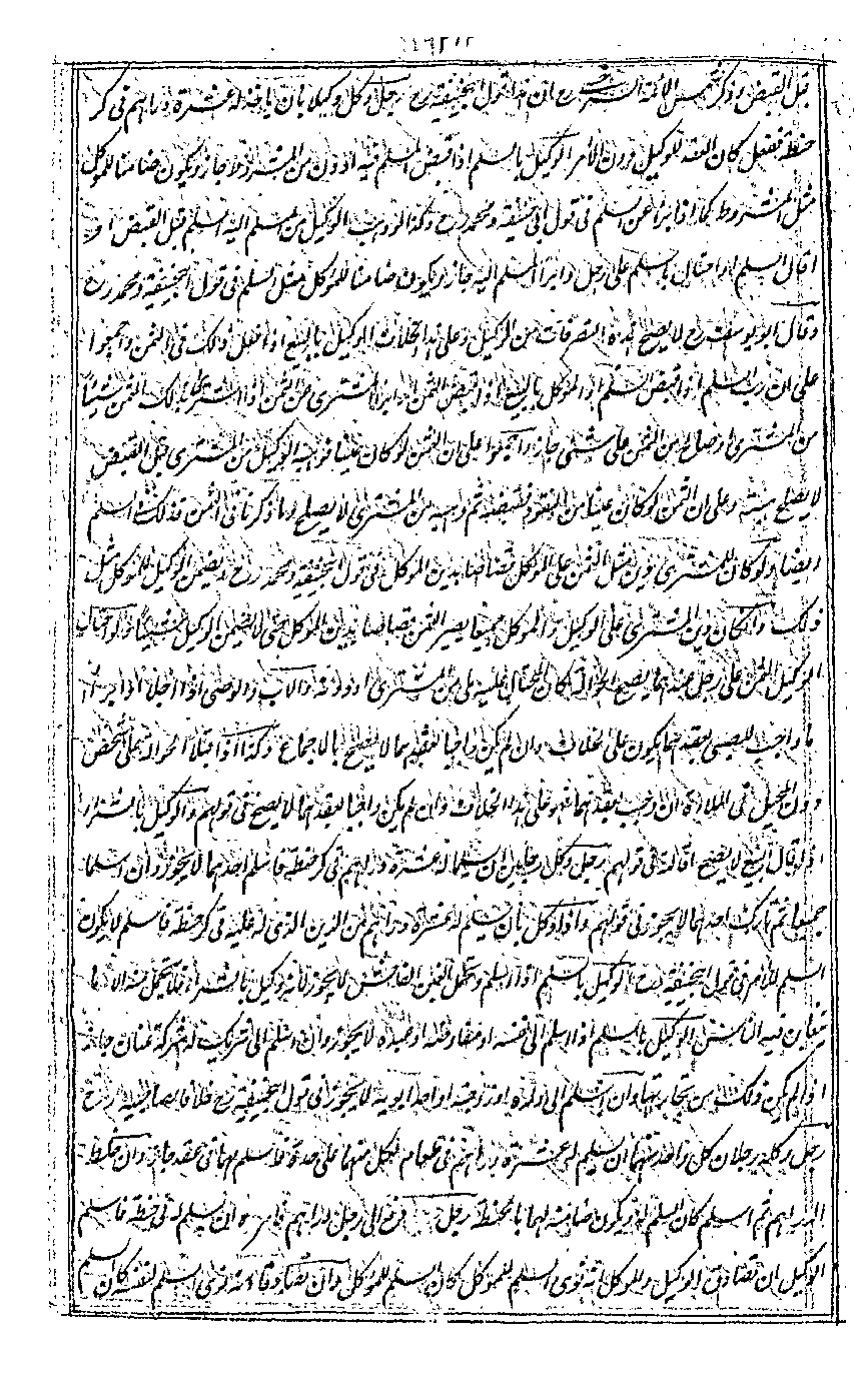 قبل القبض وذكر شمس الائمة السرخسى رح ان هذا قول ابيحنيفة رح رجل وكل وكيلا بان ياخذ له عشرة دراهم فى كر
حنطة ففعل كان العقد للوكيل دون الآمر الوكيل بالسلم اذا قبض المسلم فيه ادون من المشروط جاز ويكون ضامنا للموكل
مثل المشروط كما اذا ابرأ عن السلم فى قول ابى حنيفة ومحمد رح وكذا لو وهب الوكيل من المسلم اليه السلم قبل القبض او
اقال السلم او احتال بالسلم على رجل وابرأ المسلم اليه جاز ويكون ضامنا للموكل مثل السلم فى قول ابيحنيفة ومحمد رح
وقال ابو يوسف رح لا يصح هذه التصرفات من الوكيل وعلى هذا الخلاف الوكيل بالبيع اذا فعل ذلك فى الثمن واجمعوا
على ان رب السلم اذا قبض السلم او الموكل بالبيع اذا قبض الثمن او ابرأ المشترى عن الثمن او اشترى بذلك الثمن شيئا
من المشترى او صالح من الثمن على شئ جاز واجمعوا على ان الثمن لو كان عينا فوهبه الوكيل من المشترى قبل القبض
لا يصح هبته وعلى ان الثمن لو كان عينا من النقود فقبضه ثم وهبه من المشترى لا يصح وما ذكرنا فى الثمن فذلك فى السلم
ايضا ولو كان للمشترى دين مثل الثمن على الموكل يصير قصاصا بدين الموكل فى قول ابيحنيفة ومحمد رح ويضمن الوكيل للموكل مثل
ذلك وان كان دين المشترى على الوكيل والموكل جميعا يصير الثمن قصاصا بدين الموكل حتى لا يضمن الوكيل شيئا ولو احتال
الوكيل بالثمن على رجل عندهما يصح الحوالة كان المحتال عليه ملى من المشترى او دونه والاب والوصى اذا
ما واجب للصبى بعقدهما يكون على الخلاف وان لم يكن واجبا بعقدهما لا يصح بالاجماع وكذا اذا قبلا الحوالة على شخص
دون المحيل فى الملاءة ان وجب بعقدهما فهو على هذا الخلاف وان لم يكن واجبا بعقدهما لا يصح فى قولهم والوكيل بالشراء
اذا اقال البيع لا يصح اقالته فى قولهم رجل وكل رجلين ان يسلما له عشرة دراهم فى كر حنطة فاسلم احدهما لا يجوز وان اسلما
جميعا ثم تارك احدهما لا يجوز فى قولهم واذا وكل بان يسلم له عشرة دراهم من الدين الذى له عليه فى كر حنطة فاسلم لا يكون
السلم للآمر فى قول ابيحنيفة رح الوكيل بالسلم اذا اسلم وتحمل الغبن الفاحش لا يجوز لانه وكيل بالشراء فلا يتحمل منه الا ما
يتغابن فيه الناس الوكيل بالسلم اذا اسلم الى نفسه او مفاوضه او عبده لا يجوز وان اسلم الى شريك له شركة عنان جاز
اذا لم يكن ذلك من تجارتهما وان اسلم الى ولده او زوجته او احد ابويه لا يجوز فى قول ابيحنيفة رح خلافا لصاحبيه رح
رجل وكله رجلان كل واحد منهما ان يسلم له عشرة دراهم فى طعام لكل منهما على حدة فاسلم لهما فى عقد جاز وان خلط
الدراهم ثم اسلم كان السلم له ويكون ضامنا لهما بالخلط رجل دفع الى رجل دراهم فامره ان يسلم له فى حنطة فاسلم
الوكيل ان تصادق الوكيل والموكل انه نوى السلم للموكل كان السلم للموكل وان تصادقا انه نوى السلم لنفسه كان السلم